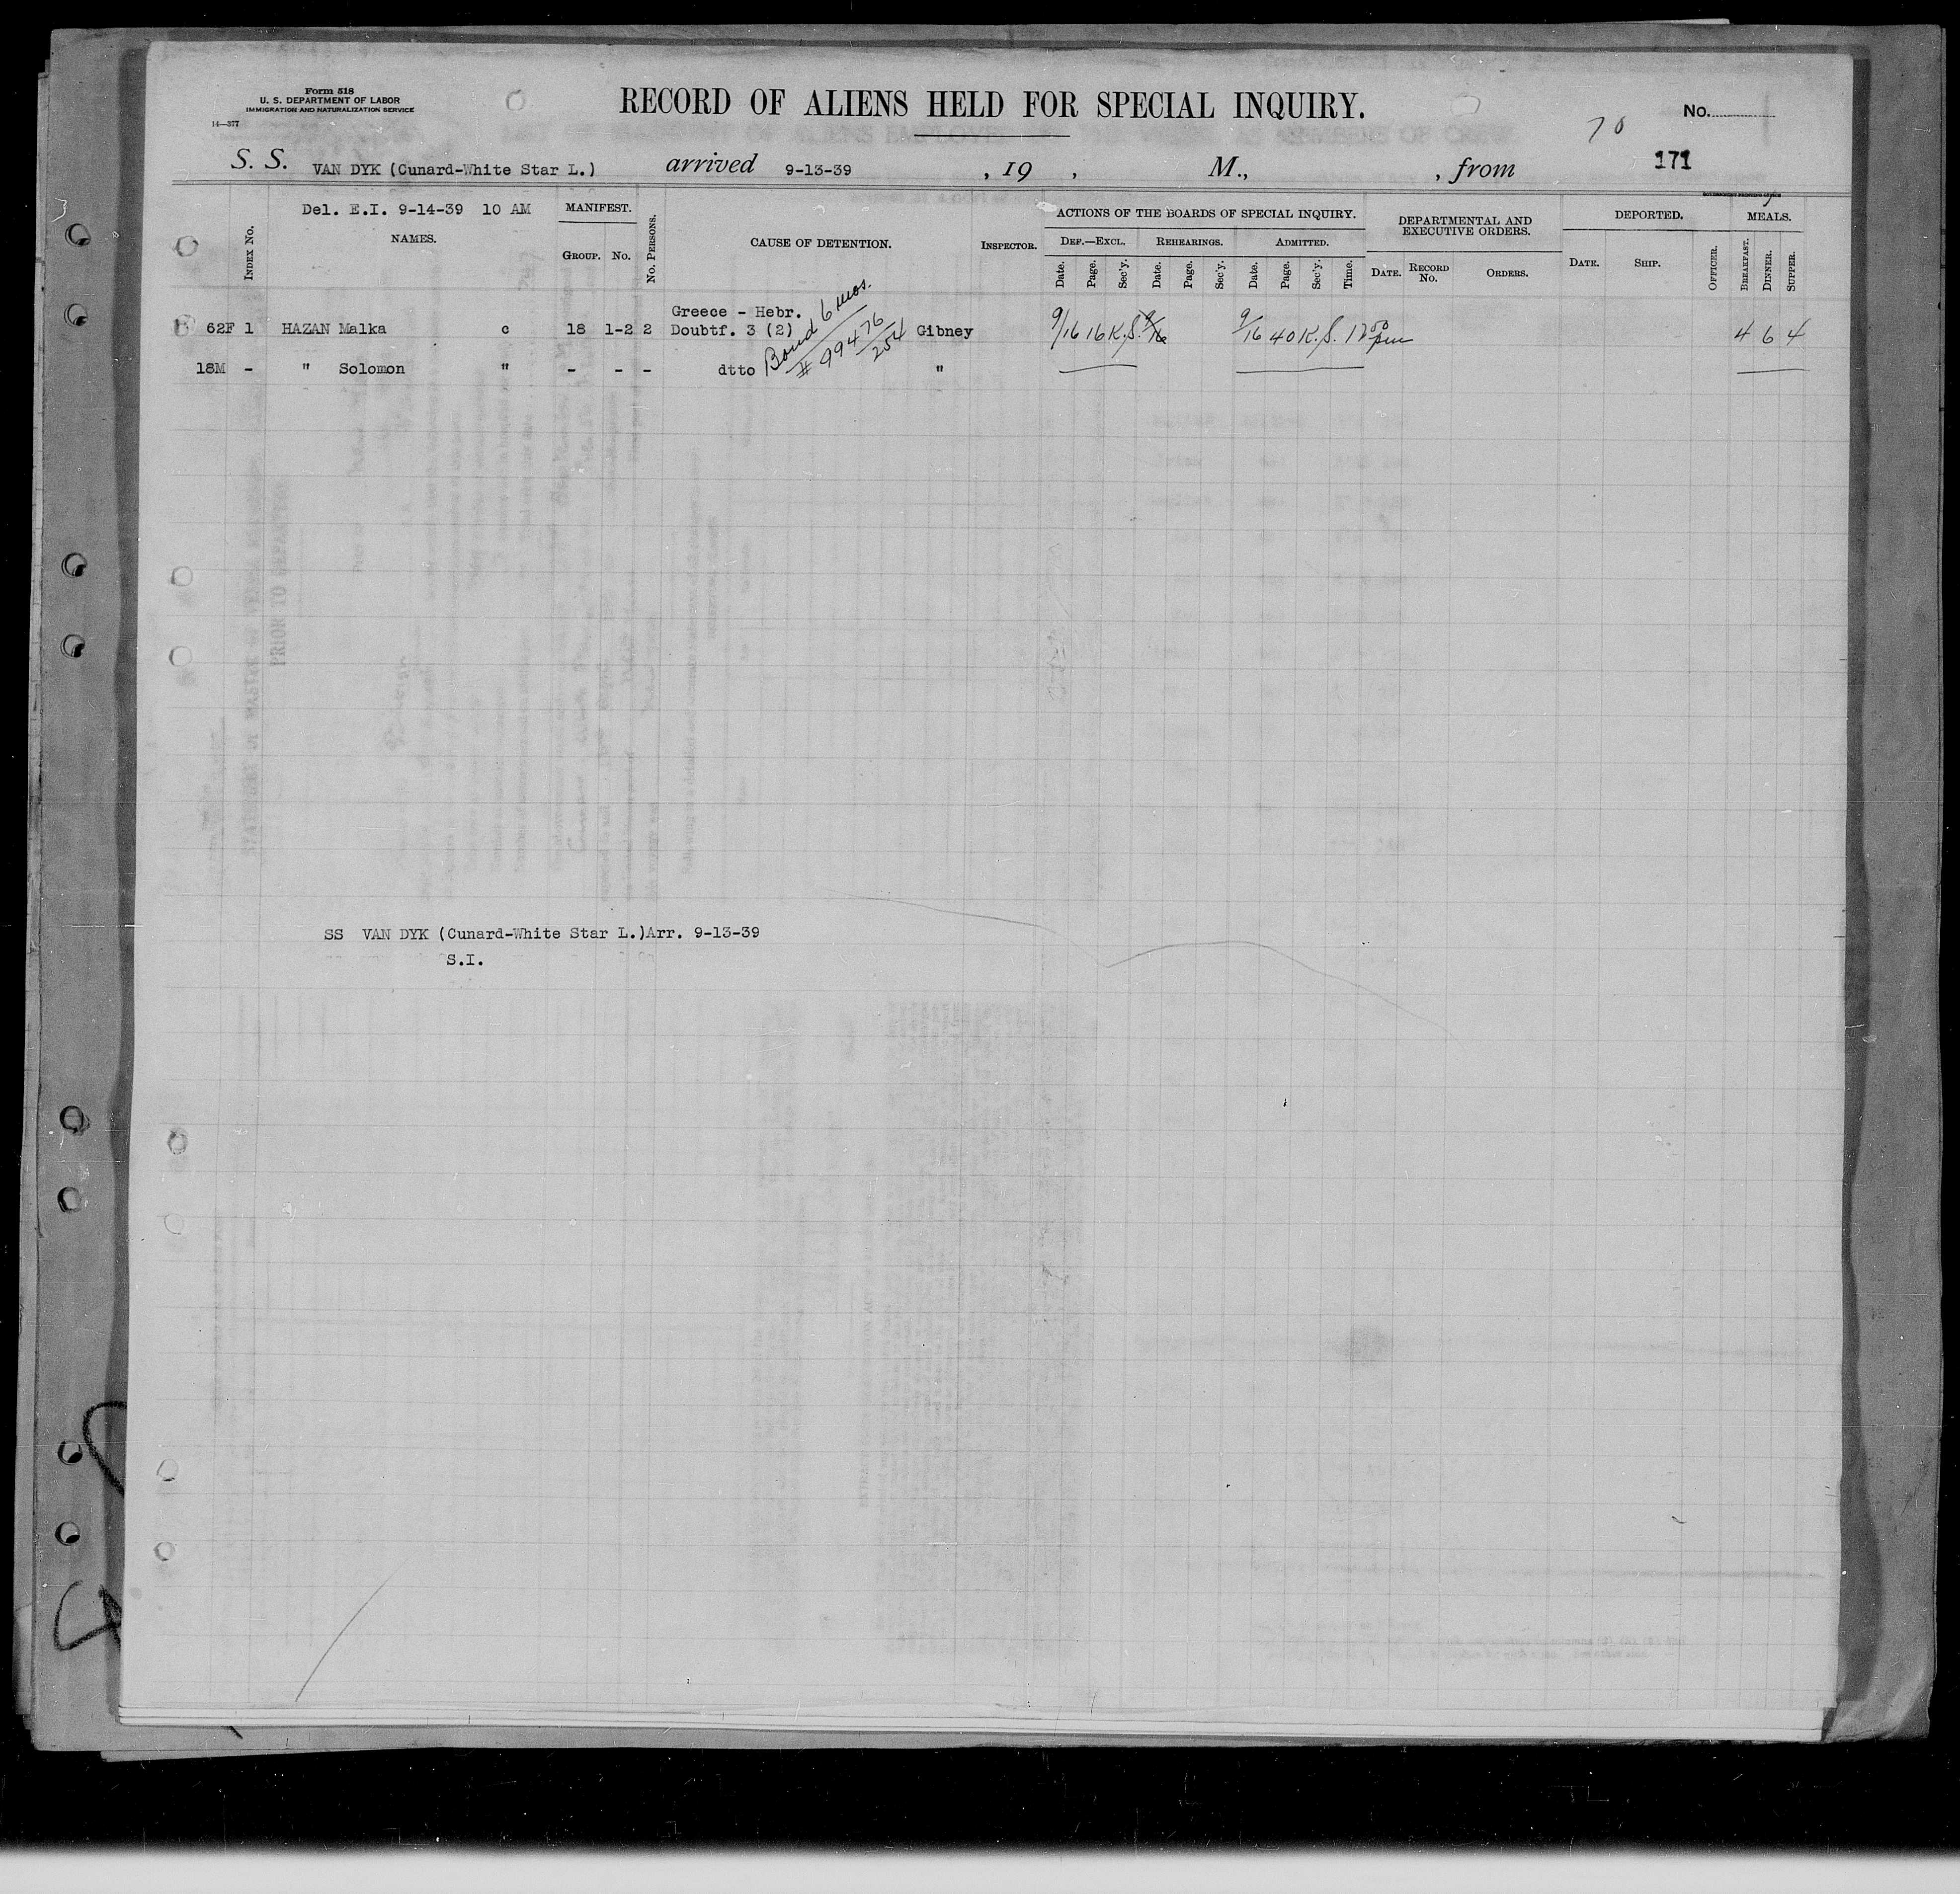 Form 518
U. S. DEPARTMENT OF LABOR
IMMIGRATION AND NATURALIZATION SERVICE
14—377
RECORD OF ALIENS HELD FOR SPECIAL INQUIRY.
No.
70
171
S. S. VAN DYK (Cunard-White Star L.) arrived 9-13-39 , 19 , M., , from
Del. E.I. 9-14-39 10 AM
INDEX No.
NAMES.
MANIFEST.
GROUP. No.
No. PERSONS.
CAUSE OF DETENTION.
INSPECTOR.
ACTIONS OF THE BOARDS OF SPECIAL INQUIRY.
DEF.—EXCL. REHEARINGS. ADMITTED.
Date. Page. Sec'y. Date. Page. Sec'y. Date. Page. Sec'y. Time.
DEPARTMENTAL AND
EXECUTIVE ORDERS.
DATE. RECORD No. ORDERS.
DEPORTED.
DATE. SHIP. OFFICER.
GOVERNMENT PRINTING OFFICE
MEALS.
BREAKFAST. DINNER. SUPPER.
Greece - Hebr.
62F 1 HAZAN Malka c 18 1-2 2 Doubtf. 3 (2) Gibney 9/16 16 K.S. 9/16 9/16 40 K.S. 12 50 pm 4 6 4
Bond 6 mos.
# 99476/254
18M - " Solomon " - - - dtto "
SS VAN DYK (Cunard-White Star L.)Arr. 9-13-39
S.I.